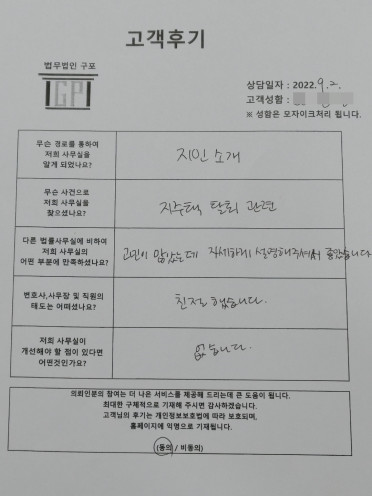 고객후기
법무법인 구포
GP
상담일자 : 2022. 9. 2.
고객성함 :
※ 성함은 모자이크처리 됩니다.
무슨 경로를 통하여
저희 사무실을
알게 되었나요?
지인 소개
무슨 사건으로
저희 사무실을
찾으셨나요?
지주택 탈퇴 관련
다른 법률사무실에 비하여
저희 사무실의
어떤 부분에 만족하셨나요?
고민이 많았는데 자세하게 설명해주셔서 좋았습니다
변호사,사무장 및 직원의
태도는 어떠셨나요?
친절 했습니다.
저희 사무실이
개선해야 할 점이 있다면
어떤것인가요?
없습니다.
의뢰인분의 참여는 더 나은 서비스를 제공해 드리는데 큰 도움이 됩니다.
최대한 구체적으로 기재해 주시면 감사하겠습니다.
고객님의 후기는 개인정보보호법에 따라 보호되며,
홈페이지에 익명으로 기재됩니다.
(동의 / 비동의)